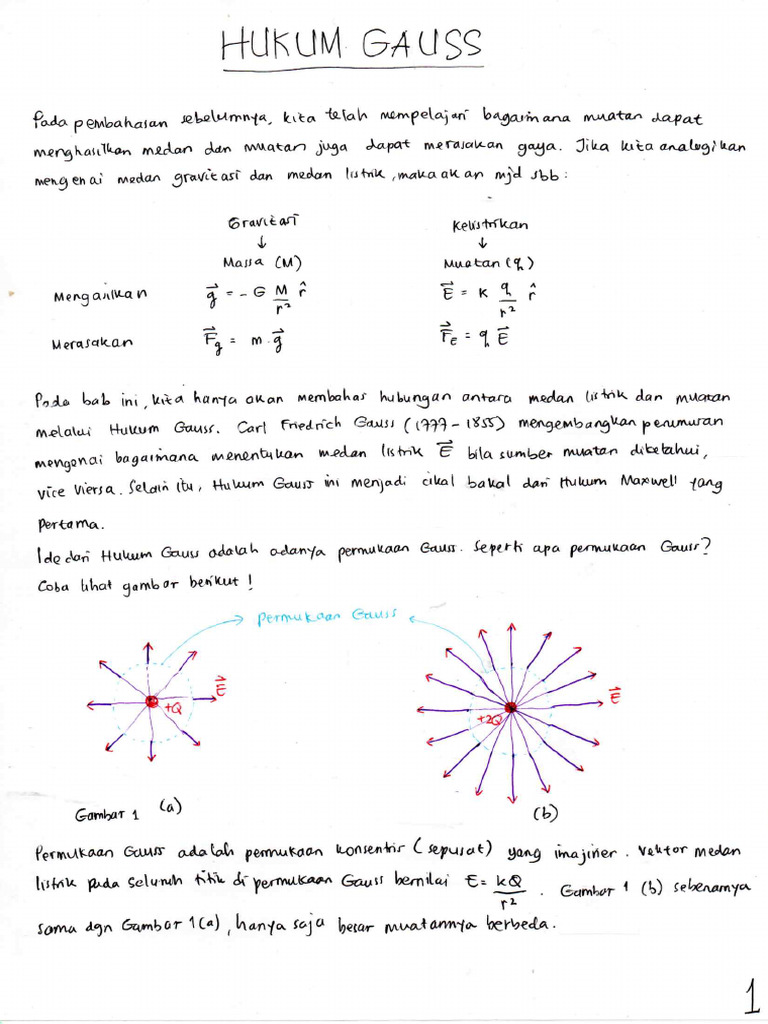 HUKUM GAUSS
Pada pembahasan sebelumnya, kita telah mempelajari bagaimana muatan dapat
menghasilkan medan dan muatan juga dapat merasakan gaya. Jika kita analogikan
mengenai medan gravitasi dan medan listrik, maka akan mjd sbb :
Gravitasi Kelistrikan
↓ ↓
Massa (M) Muatan (q)
Mengasilkan g⃗ = - G M/r² r̂ E⃗ = K q/r² r̂
Merasakan F⃗g = m . g⃗ F⃗E = q E⃗
Pada bab ini, kita hanya akan membahas hubungan antara medan listrik dan muatan
melalui Hukum Gauss. Carl Friedrich Gauss (1777 - 1855) mengembangkan perumusan
mengenai bagaimana menentukan medan listrik E⃗ bila sumber muatan diketahui,
vice viersa. Selain itu, Hukum Gauss ini menjadi cikal bakal dari Hukum Maxwell yang
pertama.
Ide dari Hukum Gauss adalah adanya permukaan Gauss. Seperti apa permukaan Gauss?
Coba lihat gambar berikut !
Permukaan Gauss
E⃗ E⃗
+Q +2Q
Gambar 1 (a) (b)
Permukaan Gauss adalah permukaan konsentris (sepusat) yang imajiner. Vektor medan
listrik pada seluruh titik di permukaan Gauss bernilai E = kQ/r² . Gambar 1 (b) sebenarnya
sama dgn Gambar 1(a), hanya saja besar muatannya berbeda.
1